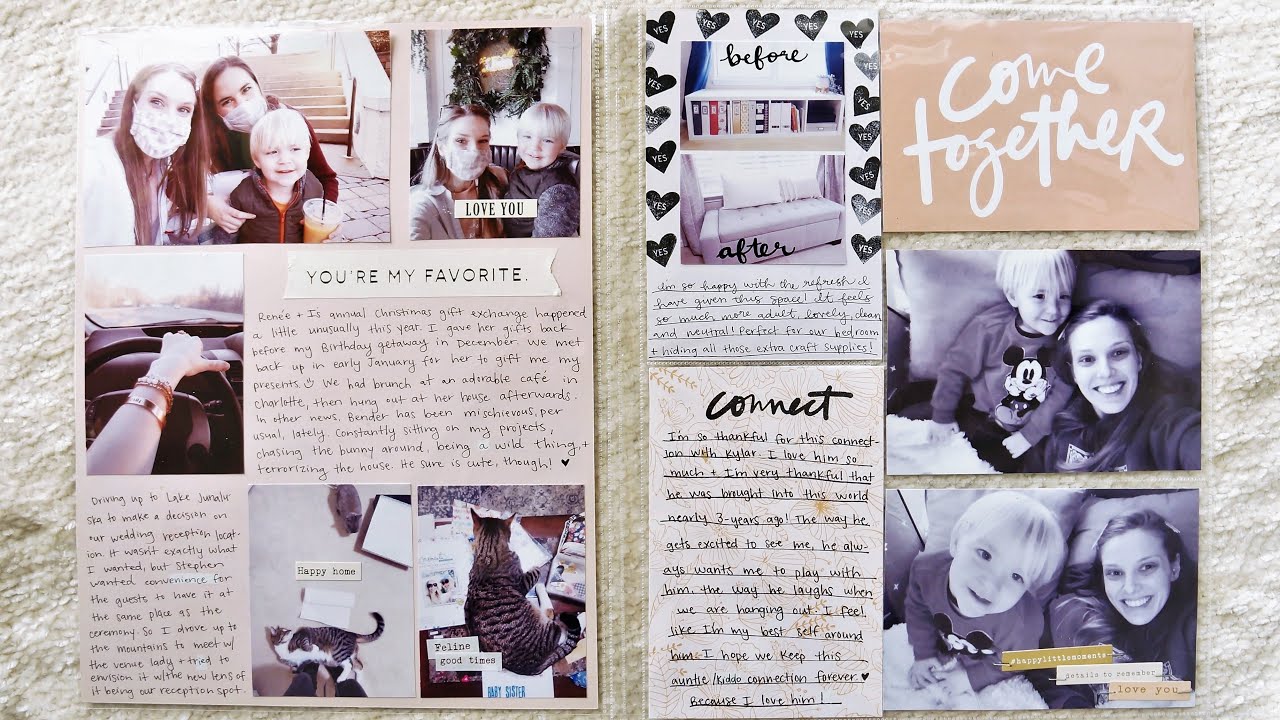 LOVE YOU
YOU'RE MY FAVORITE.
Renée + I's annual Christmas gift exchange happened
a little unusually this year. I gave her gifts back
before my Birthday getaway in December. We met
back up in early January for her to gift me my
presents. We had brunch at an adorable café in
charlotte, then hung out at her house afterwards.
in other news, Bender has been mischievous, per
usual, lately. Constantly sitting on my projects,
chasing the bunny around, being a wild thing, +
terrorizing the house. He sure is cute, though! ♥
Driving up to Lake Junalu-
ska to make a decision on
our wedding reception locat-
ion. It wasn't exactly what
I wanted, but Stephen
wanted convenience for
the guests to have it at
the same place as the
ceremony. So I drove up to
the mountains to meet w/
the venue lady + tried to
envision it w/ the new lens of
it being our reception spot.
Happy home
Feline
good times
BABY SISTER
YES YES YES YES YES
YES YES
YES YES
YES YES
YES YES
YES YES
YES YES
before
after
I'm so happy with the refresh I
have given this space! It feels
so much more adult, lovely, clean
and neutral! Perfect for our bedroom
+ hiding all those extra craft supplies!
connect
I'm so thankful for this connect-
ion with Kylar. I love him so
much + I'm very thankful that
he was brought into this world
nearly 3-years ago! The way he
gets excited to see me, he alw-
ays wants me to play with
him, the way he laughs when
we are hanging out. I feel
like I'm my best self around
him. I hope we keep this
auntie/kiddo connection forever. ♥
Because I love him!
come
together
#happylittlemoments
details to remember
love you